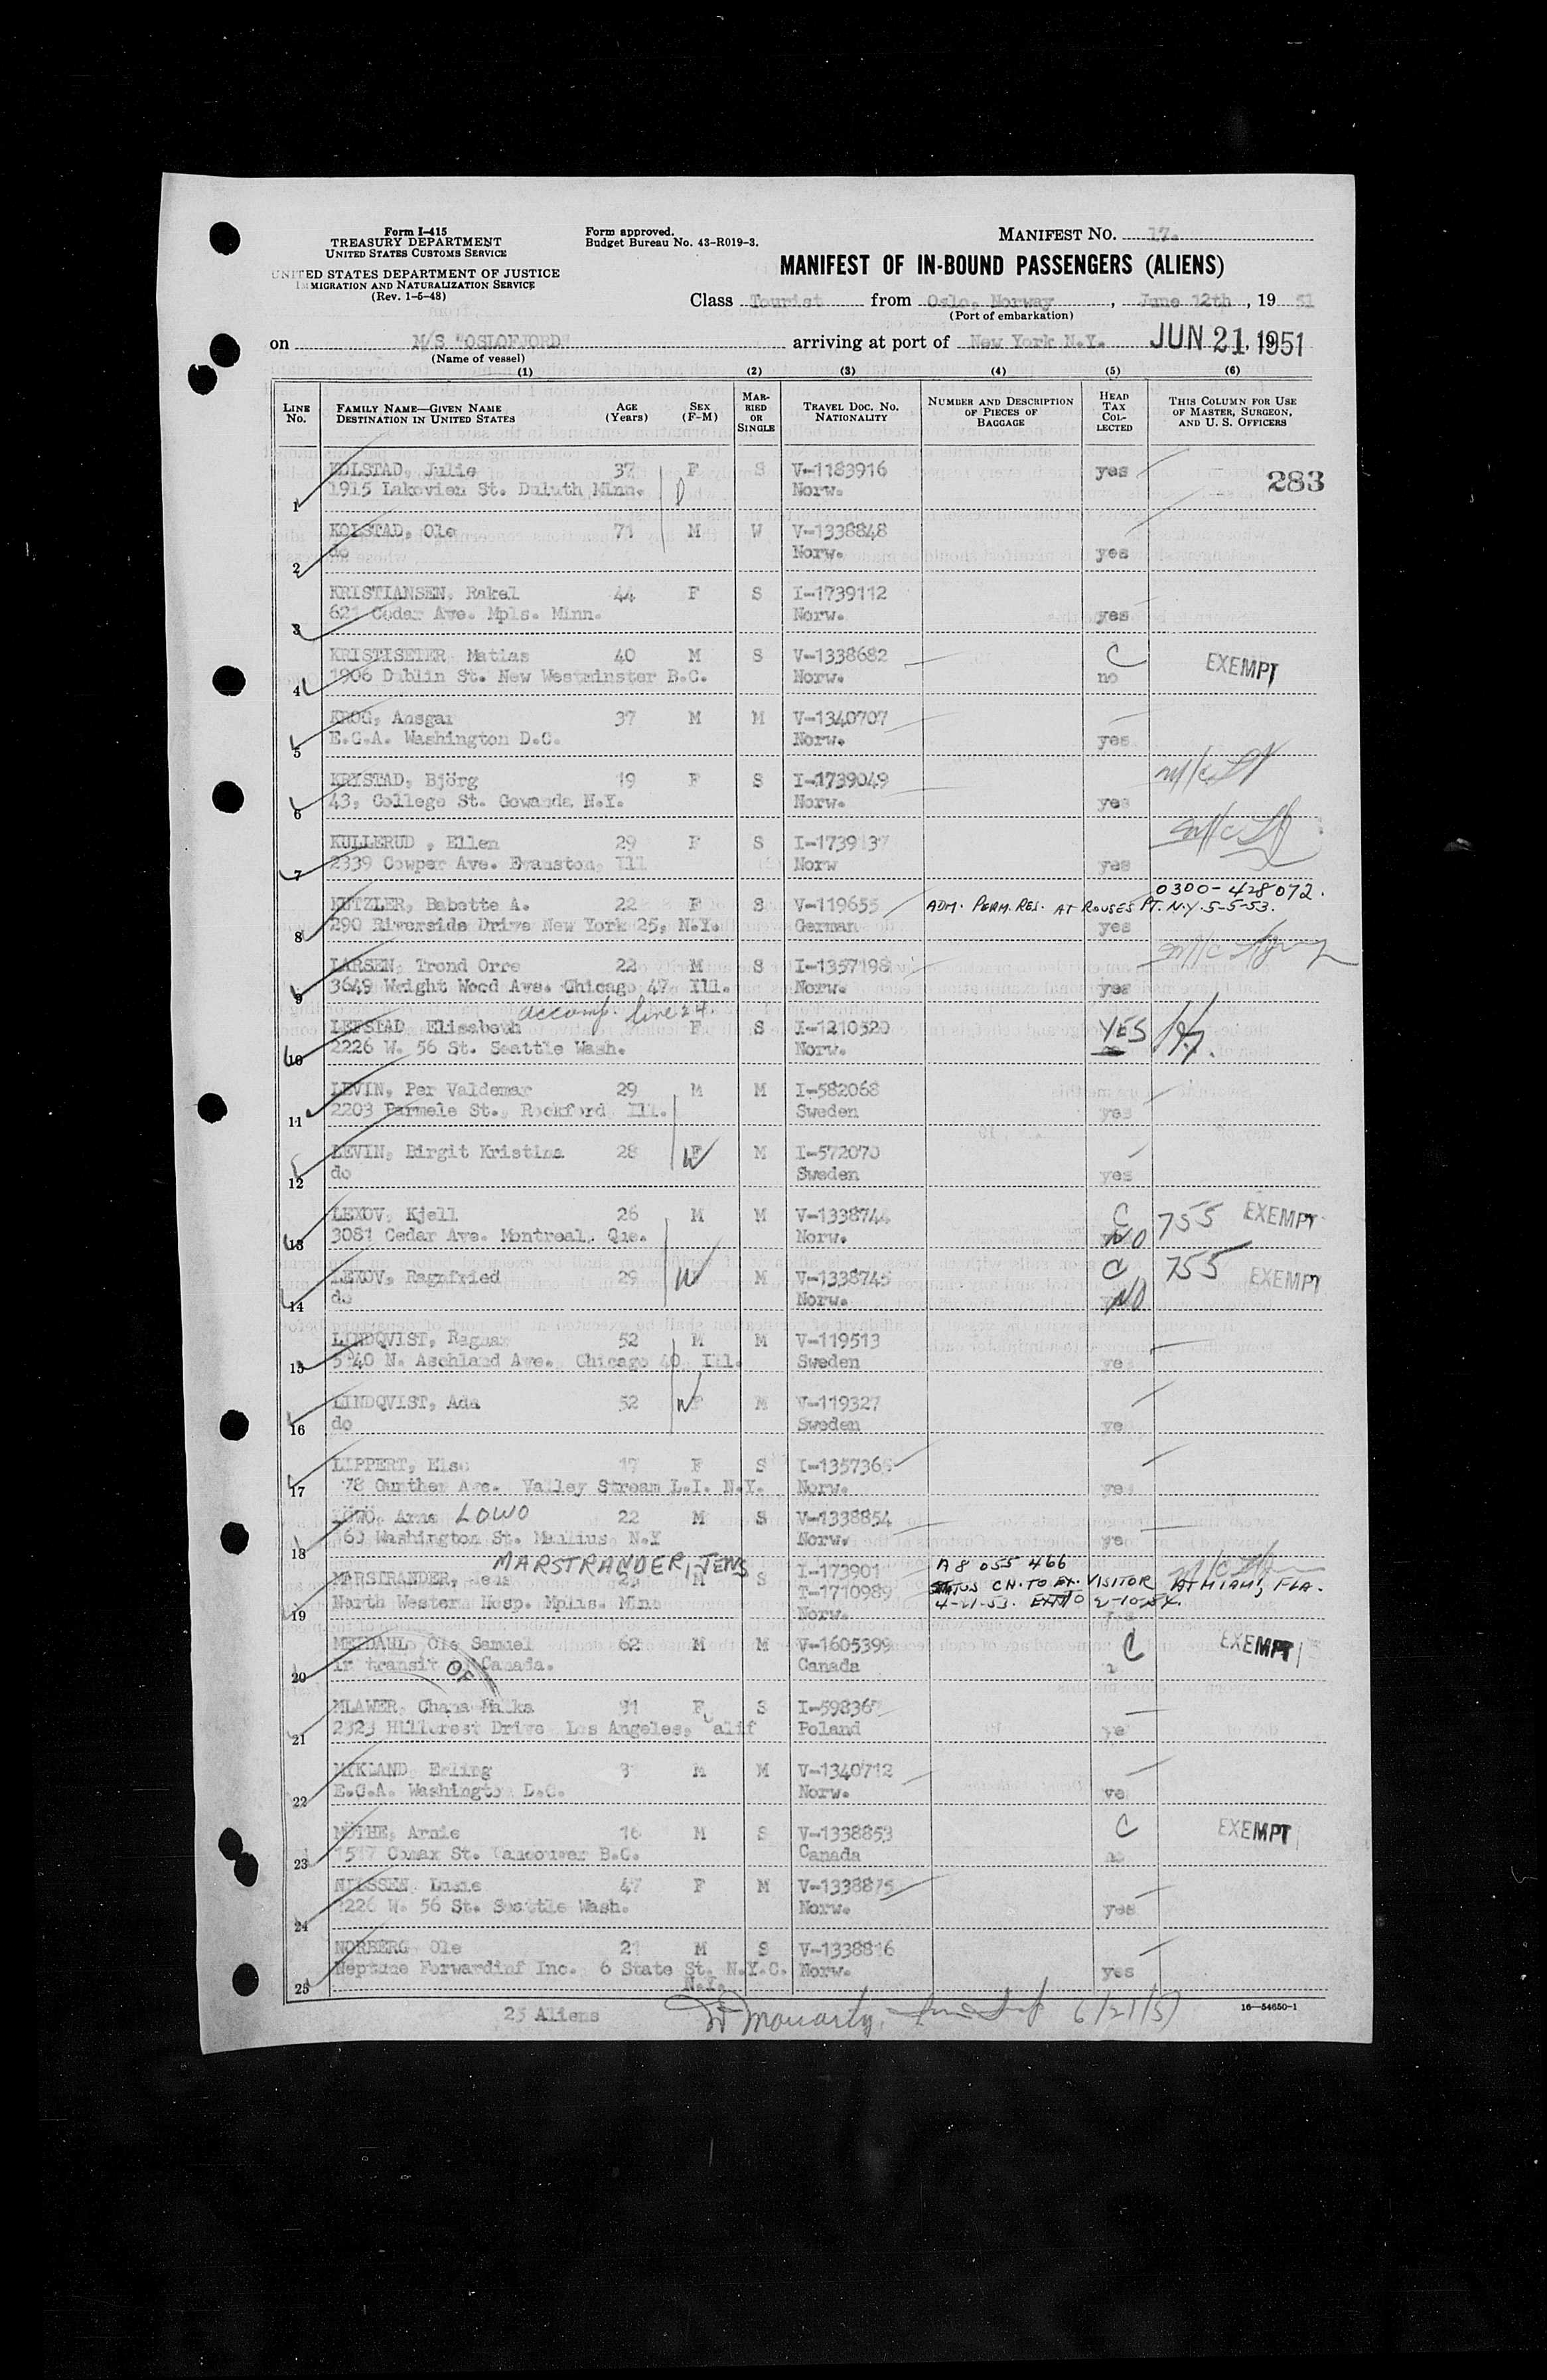 Form I-415
TREASURY DEPARTMENT
UNITED STATES CUSTOMS SERVICE
UNITED STATES DEPARTMENT OF JUSTICE
IMMIGRATION AND NATURALIZATION SERVICE
(Rev. 1-5-48)
Form approved.
Budget Bureau No. 43-R019-3.
MANIFEST NO. 17.
MANIFEST OF IN-BOUND PASSENGERS (ALIENS)
Class Tourist from Oslo, Norway, June 12th, 19 51
(Port of embarkation)
on M/S "OSLOFJORD" arriving at port of New York N.Y. JUN 21, 1951
(Name of vessel)
(1) (2) (3) (4) (5) (6)
LINE NO. FAMILY NAME—GIVEN NAME DESTINATION IN UNITED STATES AGE (Years) SEX (F-M) MARRIED OR SINGLE TRAVEL DOC. NO. NATIONALITY NUMBER AND DESCRIPTION OF PIECES OF BAGGAGE HEAD TAX COLLECTED THIS COLUMN FOR USE OF MASTER, SURGEON, AND U. S. OFFICERS
KOLSTAD, Julie 37 F S V-1183916 yes 283
1 1915 Lakevien St. Duluth Minn. Norw.
KOLSTAD, Ole 71 M W V-1338848
2 do Norw. yes
KRISTIANSEN, Rakel 44 F S I-1739112
3 621 Cedar Ave. Mpls. Minn. Norw. yes
KRISTISEIER Matias 40 M S V-1338682 C EXEMPT
4 1906 Dublin St. New Westminster B.C. Norw. no
KROG, Ansgar 37 M M V-1340707
5 E.C.A. Washington D.C. Norw. yes
KRYSTAD, Björg 19 F S I-1739049
6 43, College St. Gowanda N.Y. Norw. yes
KULLERUD , Ellen 29 F S I-1739137
7 2339 Cowper Ave. Evanston, Ill Norw yes
0300-428072.
KUTZLER, Babette A. 22 F S V-119655 ADM. PERM. RES. AT ROUSES PT. N.Y. 5-5-53.
8 290 Riverside Drive New York 25, N.Y. German yes
LARSEN, Trond Orre 22 M S I-1357198
9 3649 Wright Wood Ave. Chicago 47, Ill. Norw. yes
accomp. line 24.
LEFSTAD Elisabeth F S I-1210320 YES
10 2226 W. 56 St. Seattle Wash. Norw.
LEVIN, Per Valdemar 29 M M I-582068
11 2203 Parmele St., Rockford Ill. Sweden yes
LEVIN, Birgit Kristina 28 F M I-572070
12 do Sweden yes
LEXOV, Kjell 26 M M V-1338744 C 755 EXEMPT
13 3081 Cedar Ave. Montreal, Que. Norw. NO
LEXOV, Ragnfried 29 M V-1338745 C 755 EXEMPT
14 do Norw. NO
LINDQVIST, Ragnar 52 M M V-119513
15 5140 N. Aschland Ave. Chicago 40 Ill. Sweden ye
LINDQVIST, Ada 52 F M V-119327
16 do Sweden ye
LIPPERT, Else F S I-1357365
17 78 Gunther Ave. Valley Stream L.I. N.Y. Norw. ye
LÖWÖ, Arne LOWO 22 M S V-1338854
18 163 Washington St. Manlius N.Y Norw. ye
MARSTRANDER, JENS
MARSTRANDER, Jens M S I-173901 A8 055 466
T-1710989 STATUS CH. TO EX. VISITOR AT MIAMI, FLA.
19 North Western Hosp. Mplis. Minn Norw. 4-21-53.
MEIDAHL Ole Samuel 62 M M V-1605399 C EXEMPT
20 In transit OF Canada. Canada
MLAWER, Chana Malka F S I-59836
21 2323 Hillcrest Drive Los Angeles, alif Poland ye
MYKLAND Erling M M V-1340712
22 E.C.A. Washington D.C. Norw. ye
MÖTHE, Arnie 16 M S V-1338853 C EXEMPT
23 1517 Comax St. Vancouver B.C. Canada no
NILSSEN 47 F M V-1338875
24 2226 W. 56 St. Seattle Wash. Norw. yes
NORBERG Ole 21 M S V-1338816
25 Neptune Forwardinf Inc. 6 State St. N.Y.C. Norw. yes
N.Y.
25 Aliens Moriarty, 6/21/51 16—54650-1